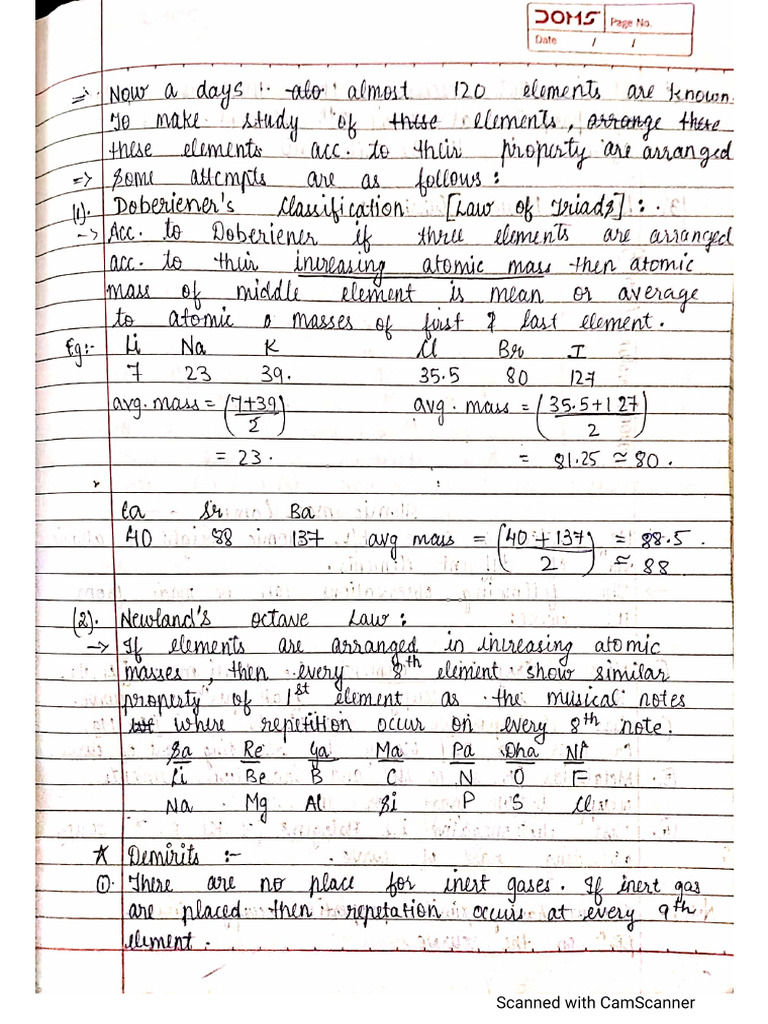 DOMS Page No.
Date / /
=> Now a days :- alo almost 120 elements are known.
To make study of these elements, arrange there
these elements acc. to their property are arranged
=> Some attempts are as follows :
(1). Doberiener's Classification [Law of Triads] :.
-> Acc. to Doberiener if three elements are arranged
acc. to their increasing atomic mass then atomic
mass of middle element is mean or average
to atomic masses of first & last element.
Eg:- Li Na K Cl Br I
7 23 39. 35.5 80 127
avg. mass = (7+39/2) avg. mass = (35.5+127/2)
= 23. = 81.25 ≃ 80.
Ca Sr Ba
40 88 137 avg mass = (40+137/2) = 88.5.
≃ 88
(2). Newland's octave Law :
-> If elements are arranged in increasing atomic
masses, then every 8th element show similar
property of 1st element as the musical notes
where repetition occur on every 8th note.
Sa Re Ga Ma Pa Dha Ni
Li Be B C N O F
Na Mg Al Si P S Cl
* Demirits :-
①. There are no place for inert gases. If inert gas
are placed then repetation occurs at every 9th
element.
Scanned with CamScanner